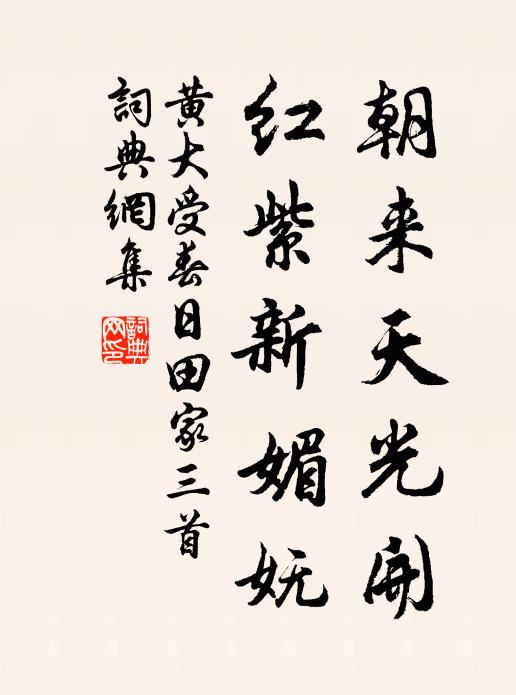 朝来天光開
紅紫新媚妩
黄大受春日田家三首
詞典網集
詞典
网印